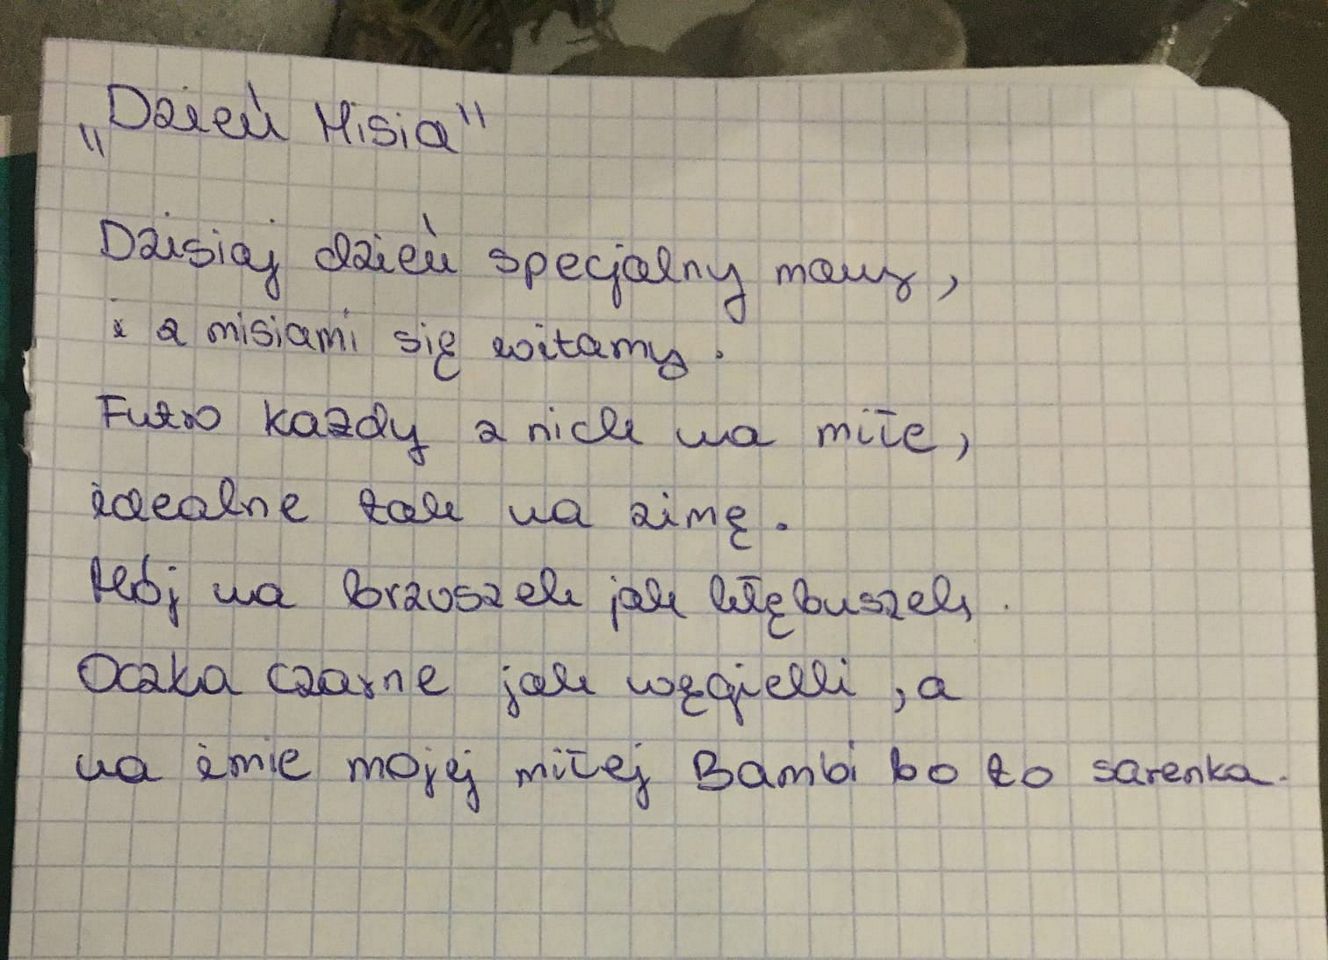 „Dzień Misia"
Dzisiaj dzień specjalny mamy,
i z misiami się witamy.
Futro każdy z nich ma miłe,
idealne tak na zimę.
Mój ma brzuszek jak kłębuszek.
Oczka czarne jak węgielki, a
na imię mojej miłej Bambi bo to sarenka.